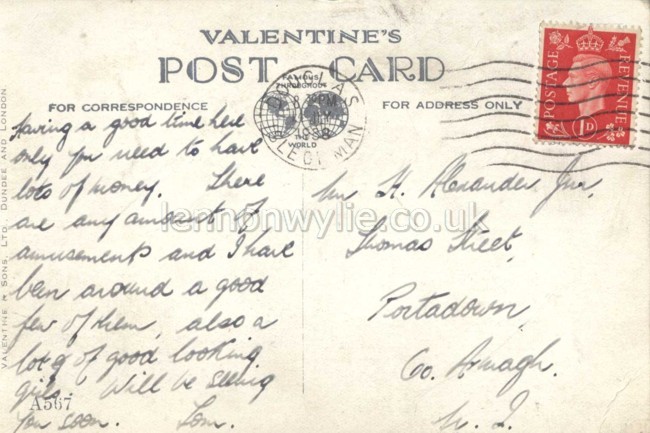 VALENTINE'S
POST CARD
FAMOUS
THROUGHOUT
THE
WORLD
FOR CORRESPONDENCE
FOR ADDRESS ONLY
VALENTINE & SONS, LTD. DUNDEE AND LONDON
DOUGLAS
1938
ISLE OF MAN
POSTAGE
REVENUE
1D
Having a good time here
only you need to have
lots of money. There
are any amount of
amusements and I have
been around a good
few of them, also a
lot of good looking
girls. Will be seeing
you soon. Tom.
A567
Mr H. Alexander Jnr.
Thomas Street,
Portadown,
Co. Armagh.
N. I.
lennonwylie.co.uk